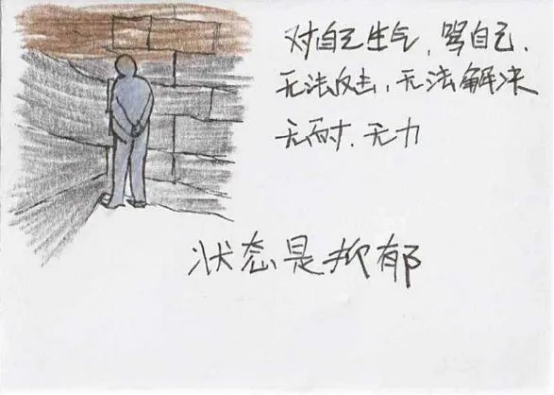 对自己生气，骂自己，
无法反击，无法解决
无耐，无力
状态是抑郁